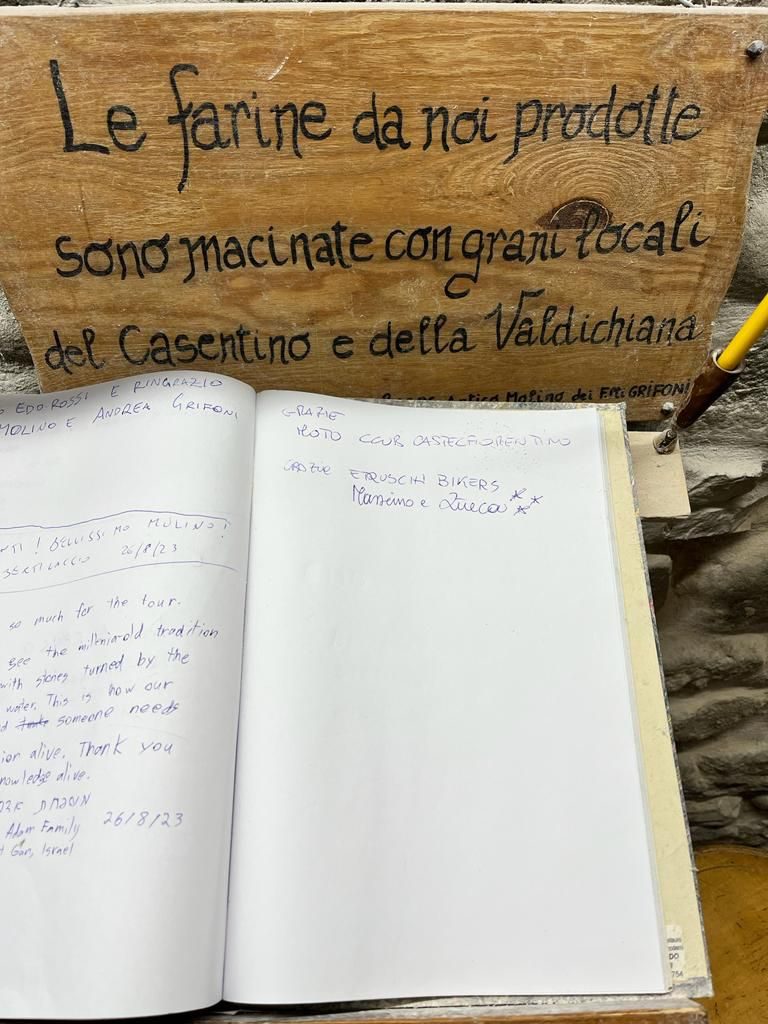 Le farine da noi prodotte
sono macinate con grani locali
del Casentino e della Valdichiana
Antico Molino dei F.lli GRIFONI
EDO ROSSI E RINGRAZIO
MOLINO E ANDREA GRIFONI
BELLISSIMO MOLINO!
26/8/23
so much for the tour.
see the millenia-old tradition
with stones turned by the
water. This is how our
someone needs
alive. Thank you
knowledge alive.
Adam Family 26/8/23
Gan, Israel
GRAZIE
MOTO CLUB CASTELFIORENTINO
ETRUSCHI BIKERS
Massimo e
DO
754